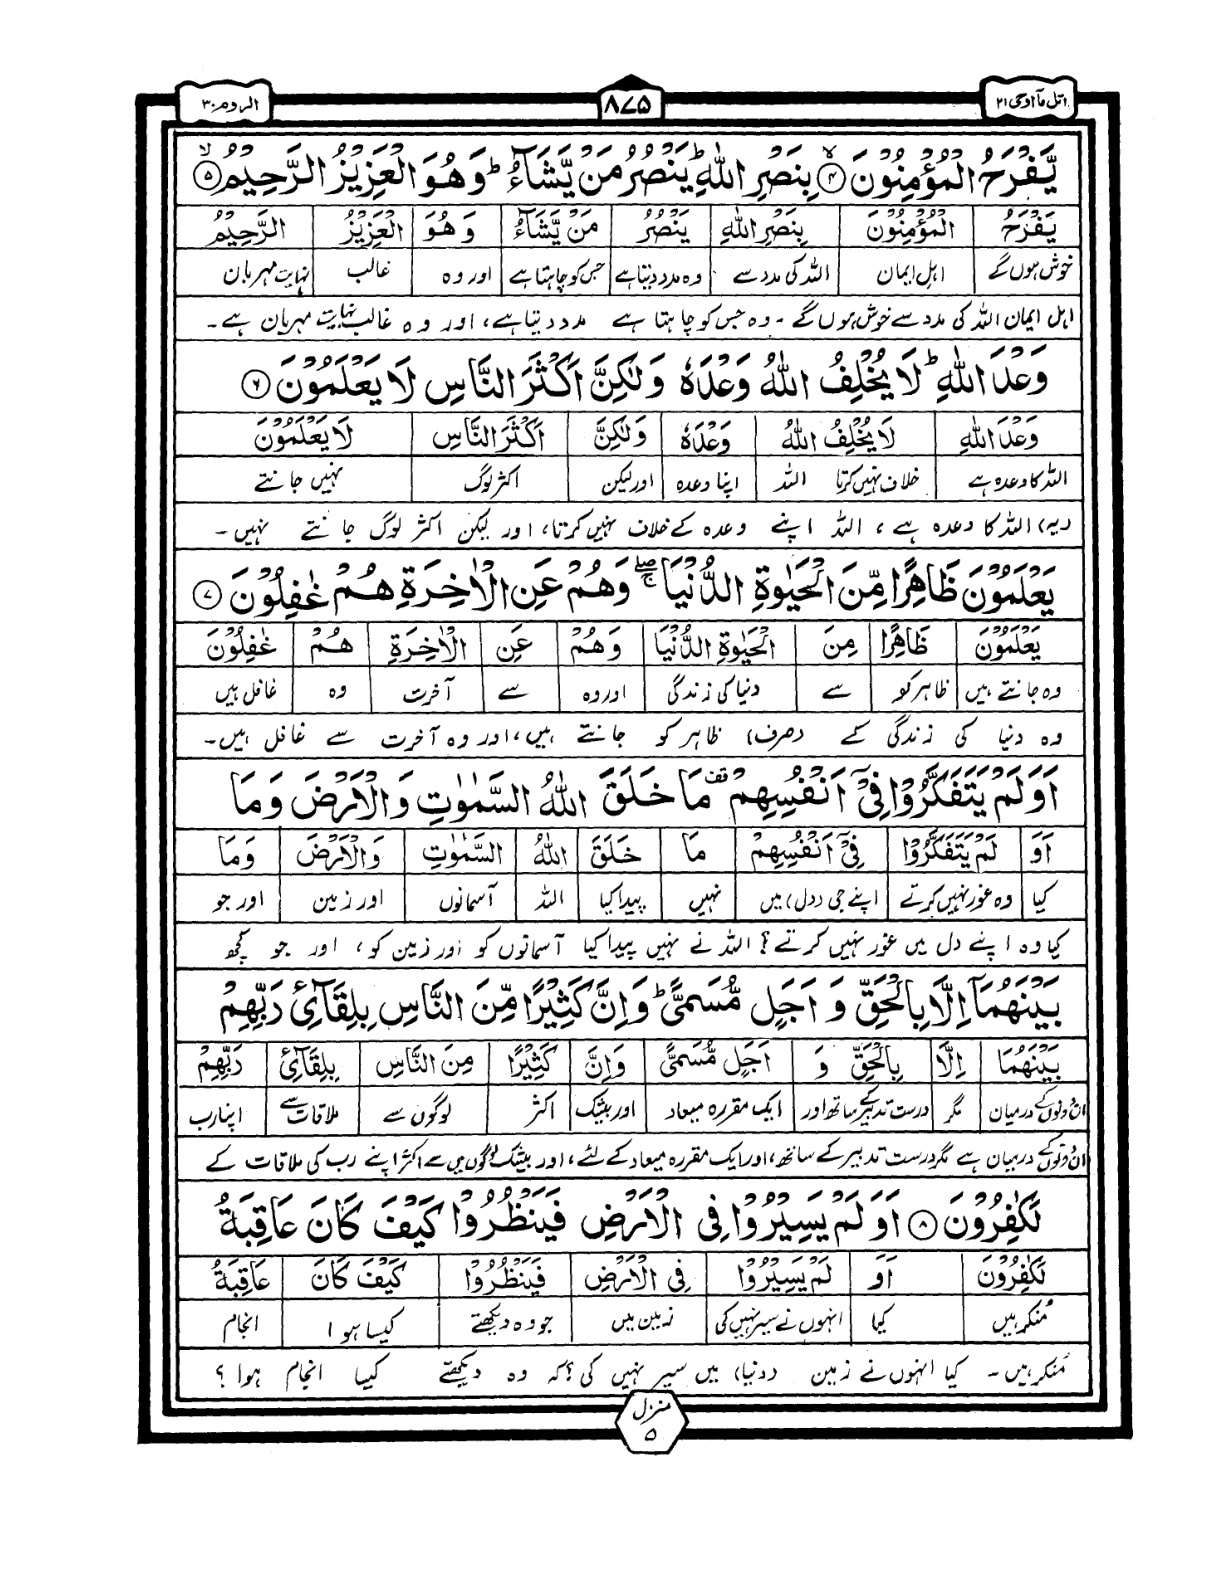 اتل مآ اوحی ۲۱
۸۷۵
الروم ۳۰
يَّفْرَحُ الْمُؤْمِنُوْنَ ۙ﴿۴﴾ بِنَصْرِ اللّٰهِ ؕ يَنْصُرُ مَنْ يَّشَآءُ ؕ وَهُوَ الْعَزِيْزُ الرَّحِيْمُ ۙ﴿۵﴾
يَفْرَحُ الْمُؤْمِنُوْنَ بِنَصْرِ اللّٰهِ يَنْصُرُ مَنْ يَّشَآءُ وَهُوَ الْعَزِيْزُ الرَّحِيْمُ
خوش ہوں گے اہلِ ایمان اللہ کی مدد سے وہ مدد دیتا ہے جس کو چاہتا ہے اور وہ غالب نہایت مہربان
اہل ایمان اللہ کی مدد سے خوش ہوں گے ۔ وہ جس کو چاہتا ہے مدد دیتا ہے، اور وہ غالب نہایت مہربان ہے ۔
وَعْدَ اللّٰهِ ؕ لَا يُخْلِفُ اللّٰهُ وَعْدَهٗ وَلٰكِنَّ اَكْثَرَ النَّاسِ لَا يَعْلَمُوْنَ ﴿۶﴾
وَعْدَ اللّٰهِ لَا يُخْلِفُ اللّٰهُ وَعْدَهٗ وَلٰكِنَّ اَكْثَرَ النَّاسِ لَا يَعْلَمُوْنَ
اللہ کا وعدہ ہے خلاف نہیں کرتا اللہ اپنا وعدہ اور لیکن اکثر لوگ نہیں جانتے
(یہ) اللہ کا وعدہ ہے، اللہ اپنے وعدہ کے خلاف نہیں کرتا، اور لیکن اکثر لوگ جانتے نہیں ۔
يَعْلَمُوْنَ ظَاهِرًا مِّنَ الْحَيٰوةِ الدُّنْيَا ۖۚ وَهُمْ عَنِ الْاٰخِرَةِ هُمْ غٰفِلُوْنَ ﴿۷﴾
يَعْلَمُوْنَ ظَاهِرًا مِنَ الْحَيٰوةِ الدُّنْيَا وَهُمْ عَنِ الْاٰخِرَةِ هُمْ غٰفِلُوْنَ
وہ جانتے ہیں ظاہر کو سے دنیا کی زندگی اور وہ سے آخرت وہ غافل ہیں
وہ دنیا کی زندگی کے (صرف) ظاہر کو جانتے ہیں، اور وہ آخرت سے غافل ہیں ۔
اَوَلَمْ يَتَفَكَّرُوْا فِيْٓ اَنْفُسِهِمْ ۫ مَا خَلَقَ اللّٰهُ السَّمٰوٰتِ وَالْاَرْضَ وَمَا
اَوَ لَمْ يَتَفَكَّرُوْا فِيْٓ اَنْفُسِهِمْ مَا خَلَقَ اللّٰهُ السَّمٰوٰتِ وَالْاَرْضَ وَمَا
کیا وہ غور نہیں کرتے اپنے جی (دل) میں نہیں پیدا کیا اللہ آسمانوں اور زمین اور جو
کیا وہ اپنے دل میں غور نہیں کرتے؟ اللہ نے نہیں پیدا کیا آسمانوں کو اور زمین کو، اور جو کچھ
بَيْنَهُمَآ اِلَّا بِالْحَقِّ وَ اَجَلٍ مُّسَمًّى ؕ وَاِنَّ كَثِيْرًا مِّنَ النَّاسِ بِلِقَآئِ رَبِّهِمْ
بَيْنَهُمَا اِلَّا بِالْحَقِّ وَ اَجَلٍ مُّسَمًّى وَاِنَّ كَثِيْرًا مِنَ النَّاسِ بِلِقَآئِ رَبِّهِمْ
ان دونوں کے درمیان مگر درست تدبیر کے ساتھ اور ایک مقررہ میعاد اور بیشک اکثر لوگوں سے ملاقات سے اپنا رب
ان دونوں کے درمیان ہے مگر درست تدبیر کے ساتھ، اور ایک مقررہ میعاد کے لئے، اور بیشک لوگوں میں سے اکثر اپنے رب کی ملاقات کے
لَكٰفِرُوْنَ ﴿۸﴾ اَوَلَمْ يَسِيْرُوْا فِي الْاَرْضِ فَيَنْظُرُوْا كَيْفَ كَانَ عَاقِبَةُ
لَكٰفِرُوْنَ اَوَ لَمْ يَسِيْرُوْا فِي الْاَرْضِ فَيَنْظُرُوْا كَيْفَ كَانَ عَاقِبَةُ
منکر ہیں کیا انہوں نے سیر نہیں کی زمین میں جو وہ دیکھتے کیسا ہوا انجام
منکر ہیں ۔ کیا انہوں نے زمین (دنیا) میں سیر نہیں کی؟ کہ وہ دیکھتے کیسا انجام ہوا ؟
منزل
۵